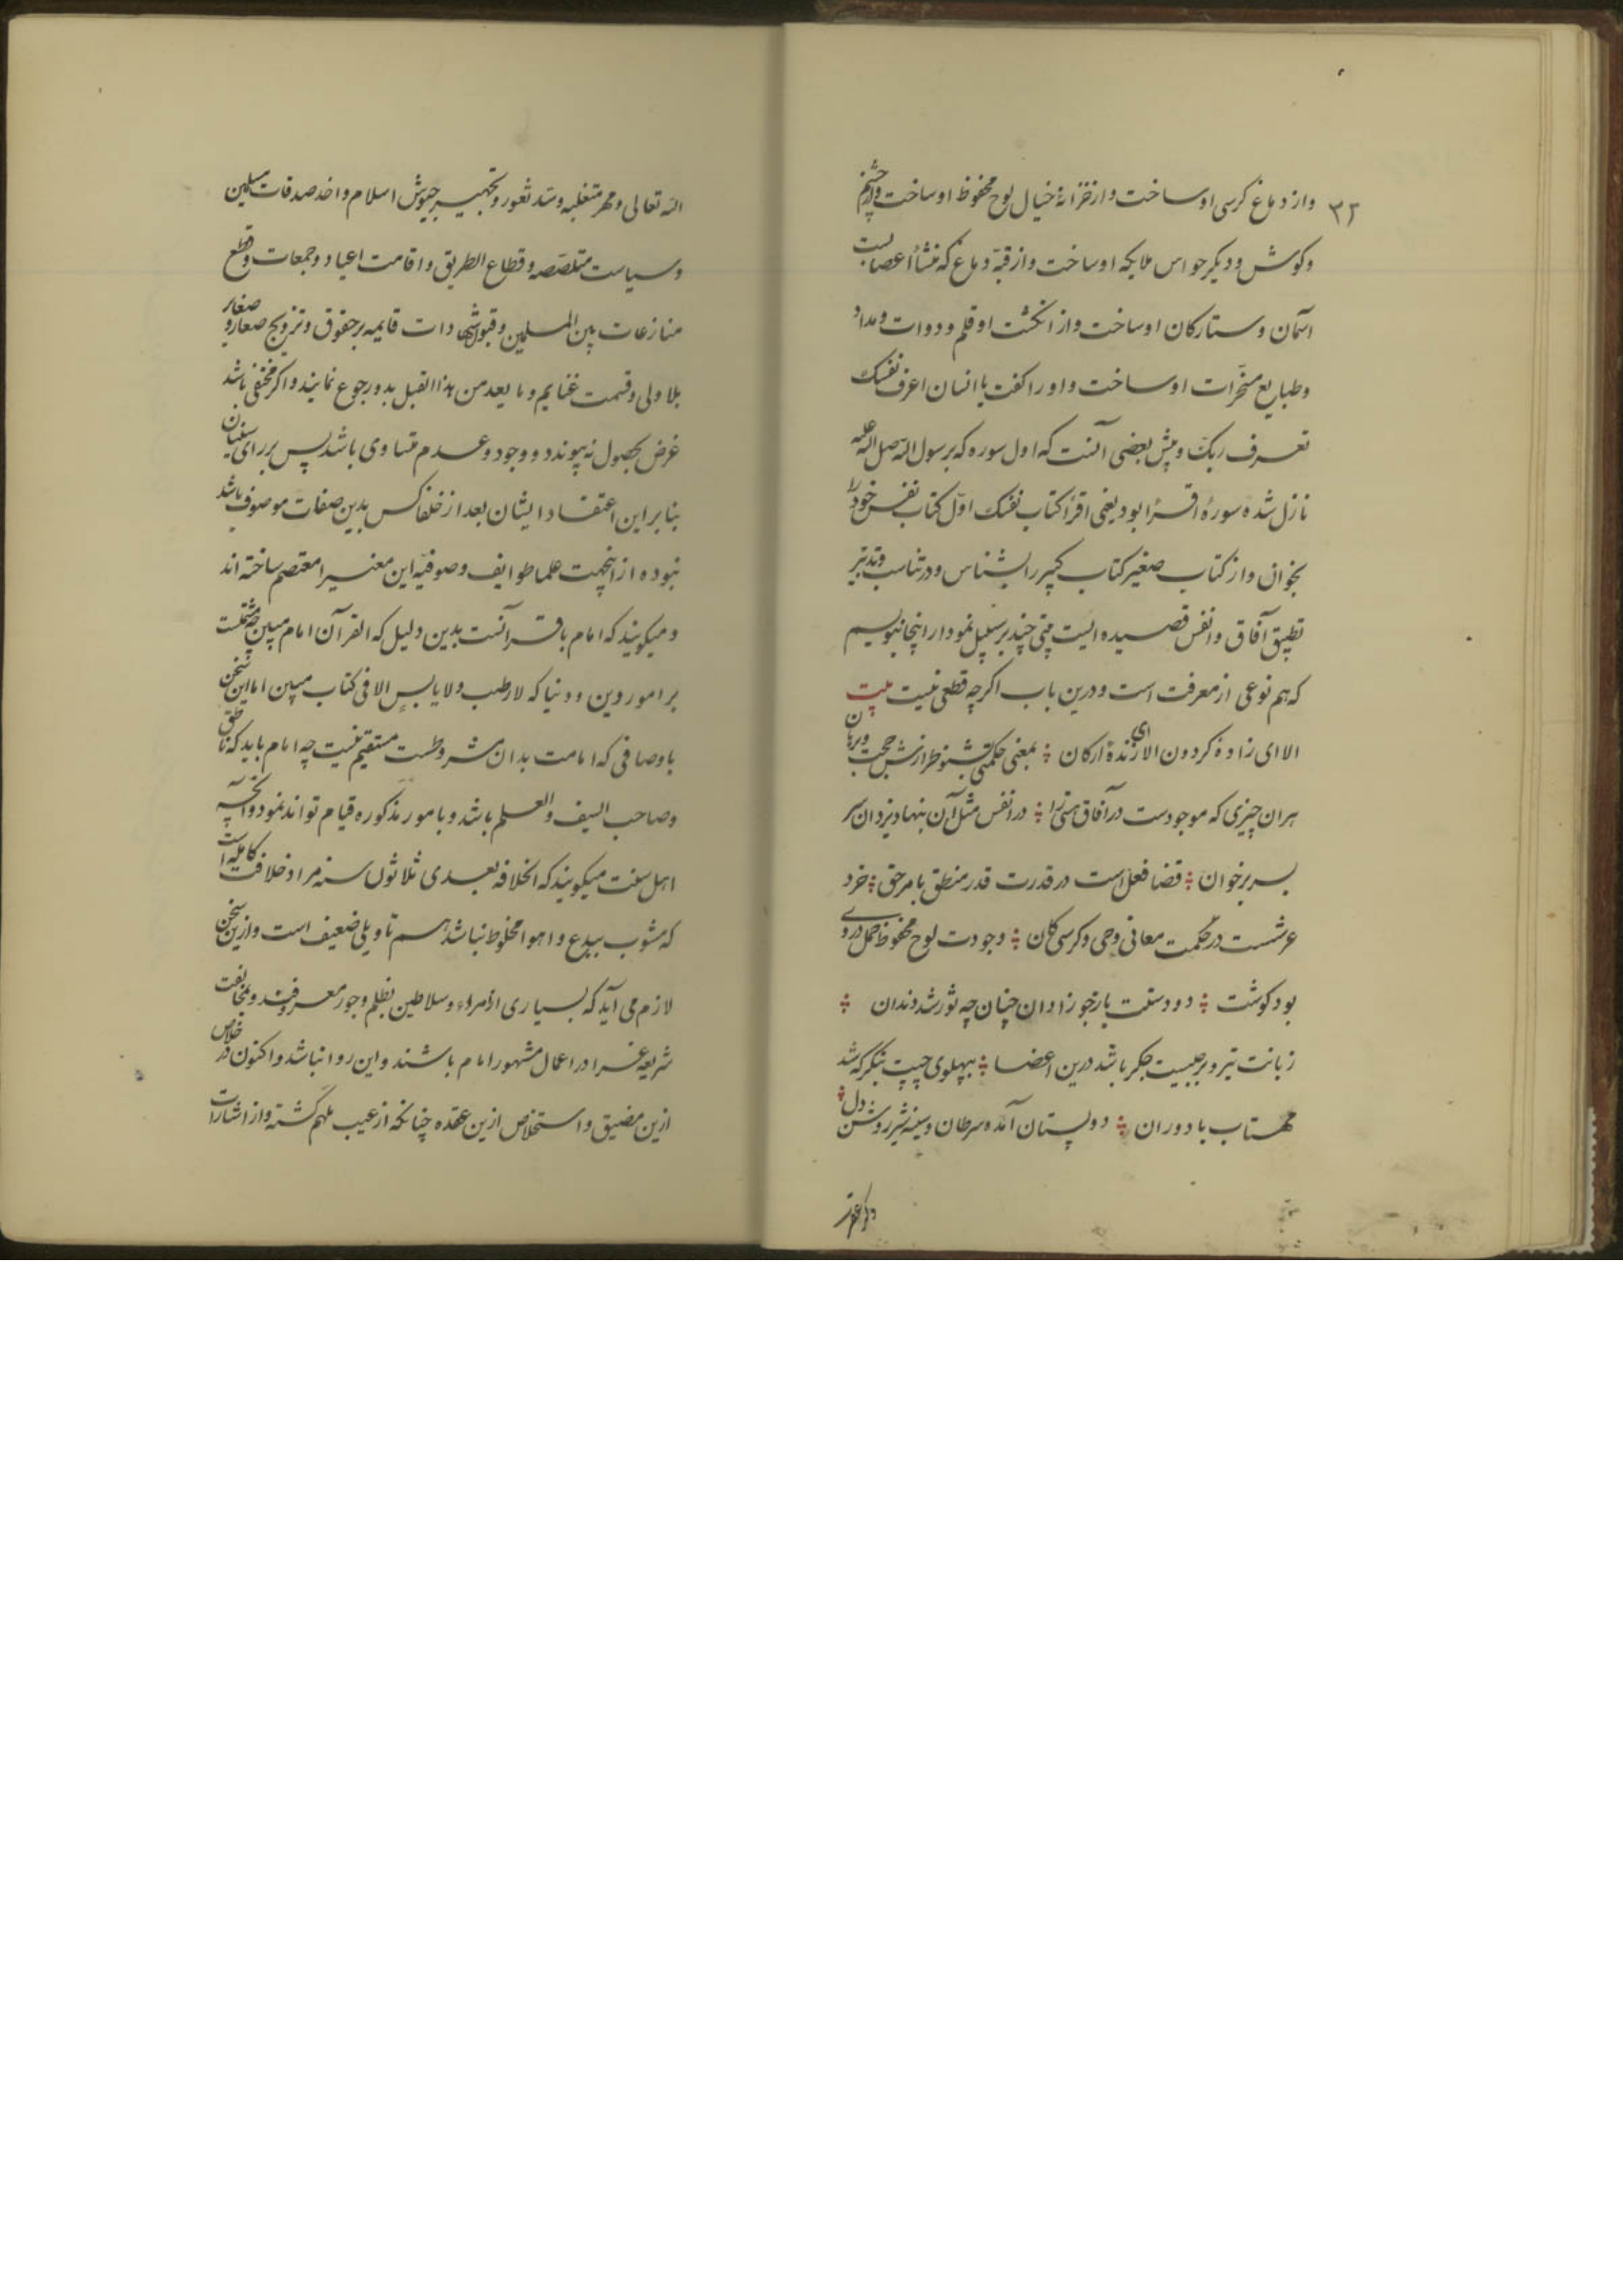 ۳۲
واز دماغ کرسی او ساخت و از خزانهٔ خیال لوح محفوظ او ساخت و از چشم
و کوش و دیکر حواس ملایکه او ساخت و از قبّه دماغ که منشأ اعصابست
آسمان و ستارکان او ساخت و از انکشت او قلم و دوات و مداد
و طبایع مسخّرات او ساخت و او را کفت یا انسان اعرف نفسک
تعرف ربک و پیش بعضی آنست که اول سوره که بر سول الله صل الله علیه
نازل شده سورهٔ اقرأ بود یعنی اقرأ کتاب نفسک اوّل کتاب نفس خود را
بخوان و از کتاب صغیر کتاب کبیر را بشناس و در تناسب و تدبّر
تطبیق آفاق و انفس قصیده ایست بیتی چند بر سبیل نمودار اینجا بنویسیم
که هم نوعی از معرفت است و درین باب اکرچه قطعی نیست بیت
الا ای زادهٔ کردون الا ای زندهٔ ارکان بمعنی حکمتی بشنو طرازش حجت و برهان
هران چیزی که موجودست در آفاق هستی را در انفس مثل آن بنهاد یزدان سر
بسر برخوان قضا فعل است در قدرت قدر منطق بامر حق خرد
عرشست در حکمت معانی وحی و کرسی کان وجودت لوح محفوظ حمل در وی
بود کوشت دو دستت باز جوزا دان چنان چه ثور شد دندان
زبانت تیر و برجیست جکر باشد درین اعضا بپهلوی چپ بنکر که شد
مهتاب با دوران دو پستان آمده سرطان و سینه شیر روشن دل
الله تعالی و قهر متغلبه و سد ثغور و تجهیز جیوش اسلام و اخذ صدقات مسلمین
و سیاست متلصصه و قطاع الطریق و اقامت اعیاد و جمعات و قطع
منازعات بین المسلمین و قبول شهادات قایمه بر حقوق و تزویج صغار و صغایر
بلا ولی و قسمت غنایم و ما یعد من هذا القبیل بدو رجوع نمایند و اکر مختفی باشد
غرض بحصول نه پیوندد و وجود و عدم متساوی باشد پس بر رای سنیان
بنا بر این اعتقاد ایشان بعد از خلفا کس بدین صفات موصوف باشد
نبوده از اینجهت علما طوایف و صوفیه این معنی را معتصم ساخته اند
و میکویند که امام باقی قرآنست بدین دلیل که القرآن امام مبین چه مشتملست
بر امور دین و دنیا که لا رطب و لا یابس الا فی کتاب مبین اما این سخن
با وصافی که امامت بدان مشروطست مستقیم نیست چه امام باید که ناطق
و صاحب السیف و العلم باشد و بامور مذکوره قیام تواند نمود و آنچه
اهل سنت میکویند که الخلافة بعدی ثلاثون سنه مراد خلافت کامله است
که مشوب ببدع و اهوا مخلوط نباشد هم تاویلی ضعیف است و ازین سخن
لازم می آید که بسیاری از امراء و سلاطین بظلم و جور معروفند و بمخالفت
شریعه غرا در اعمال مشهور امام باشند و این روا نباشد و اکنون در خلاص
ازین مضیق و استخلاص ازین عقده چنانکه از غیب ملهم کشته و از اشارات